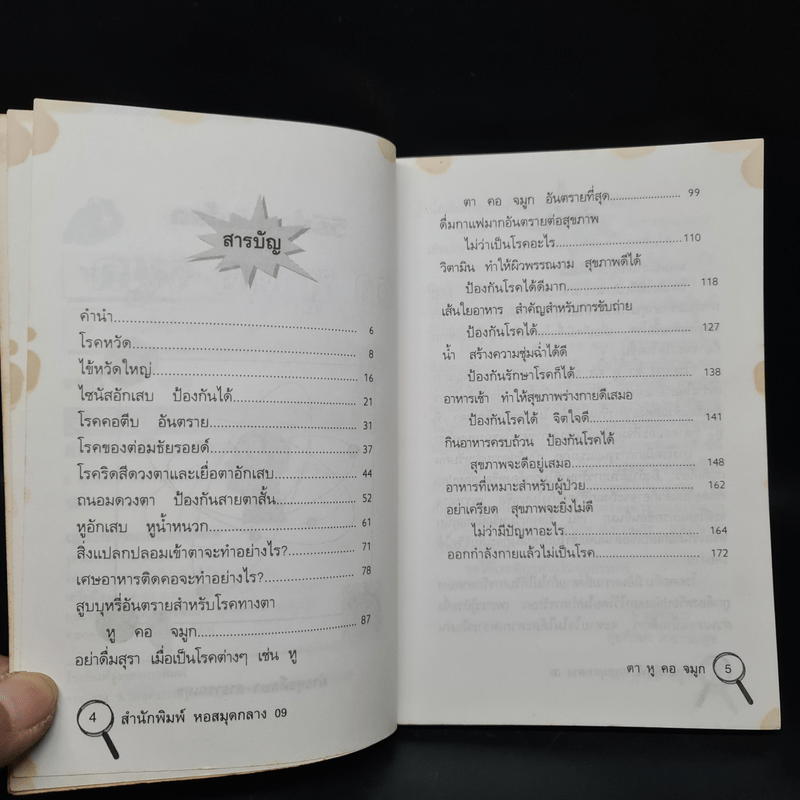 สารบัญ
คำนำ.......................................................... 6
โรคหวัด.......................................................... 8
ไข้หวัดใหญ่.......................................................... 16
ไซนัสอักเสบ ป้องกันได้.......................................... 21
โรคคอตีบ อันตราย.......................................... 31
โรคของต่อมธัยรอยด์.......................................... 37
โรคริดสีดวงตาและเยื่อตาอักเสบ.......................... 44
ถนอมดวงตา ป้องกันสายตาสั้น.......................... 52
หูอักเสบ หูน้ำหนวก.......................................... 61
สิ่งแปลกปลอมเข้าตาจะทำอย่างไร?.................. 71
เศษอาหารติดคอจะทำอย่างไร?.......................... 78
สูบบุหรี่อันตรายสำหรับโรคทางตา
หู คอ จมูก.......................................... 87
อย่าดื่มสุรา เมื่อเป็นโรคต่างๆ เช่น หู
4 สำนักพิมพ์ หอสมุดกลาง 09
ตา คอ จมูก อันตรายที่สุด........................ 99
ดื่มกาแฟมากอันตรายต่อสุขภาพ
ไม่ว่าเป็นโรคอะไร..................................110
วิตามิน ทำให้ผิวพรรณงาม สุขภาพดีได้
ป้องกันโรคได้ดีมาก.................................. 118
เส้นใยอาหาร สำคัญสำหรับการขับถ่าย
ป้องกันโรคได้.......................................... 127
น้ำ สร้างความชุ่มฉ่ำได้ดี
ป้องกันรักษาโรคก็ได้.................................. 138
อาหารเช้า ทำให้สุขภาพร่างกายดีเสมอ
ป้องกันโรคได้ จิตใจดี.................................. 141
กินอาหารครบถ้วน ป้องกันโรคได้
สุขภาพจะดีอยู่เสมอ.................................. 148
อาหารที่เหมาะสำหรับผู้ป่วย.......................... 162
อย่าเครียด สุขภาพจะยิ่งไม่ดี
ไม่ว่ามีปัญหาอะไร.................................. 164
ออกกำลังกายแล้วไม่เป็นโรค.......................... 172
ตา หู คอ จมูก 5